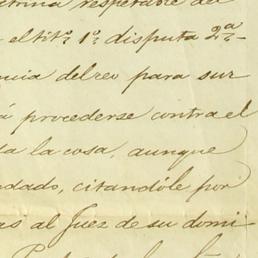 trina respetable del
el tit.º 1.º disputa 2.ª
ncia del reo para sur
á procederse contra el
da la cosa, aunque
ndado, citandóle por
as al Juez de su domi